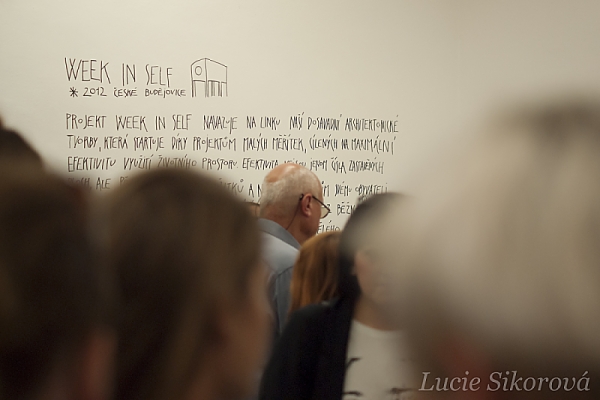 WEEK IN SELF
* 2012 ČESKÉ BUDĚJOVICE
PROJEKT WEEK IN SELF NAVAZUJE NA LINKU NAŠÍ DOSAVADNÍ ARCHITEKTONICKÉ
TVORBY, KTERÁ STARTUJE DÍKY PROJEKTŮM MALÝCH MĚŘÍTEK, CÍLENÝCH NA MAXIMÁLNÍ
EFEKTIVITU VYUŽITÍ ŽIVOTNÍHO PROSTORU. EFEKTIVITA JEN ČÍSLA ZASTAVĚNÝCH
ALE
A NA
OBYVATELI
Lucie Sikorová